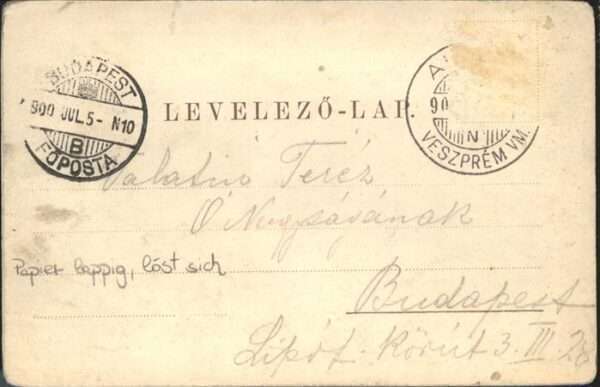 BUDAPEST
900 JUL. 5- N10
B
FŐPOSTA
LEVELEZŐ-LAP.
A
90
N
VESZPRÉM VM.
Teréz
Ő Nagysávának
Papier lappig, löst sich
Budapest
Lipót-Körút 3. III. 28